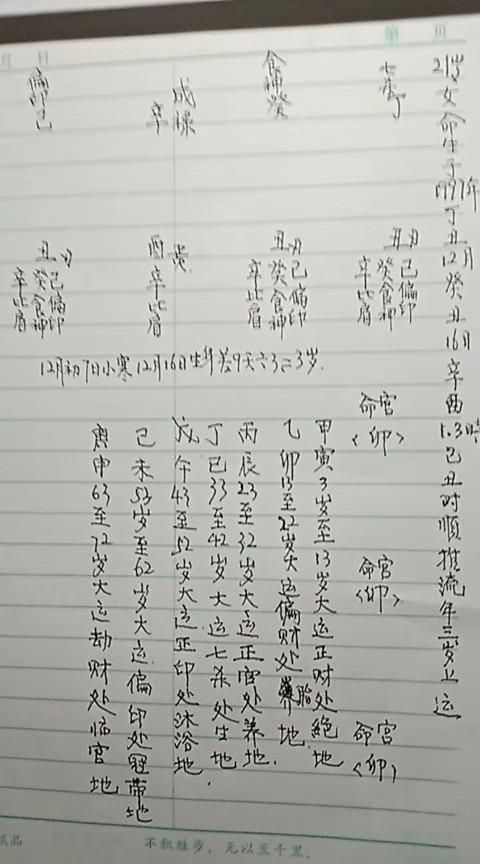 第 页
月 日
21岁女命生于1997年丁丑12月癸丑16日辛酉1.3時己丑时顺推流年三岁上运
七杀丁
食神癸
成禄
辛
偏印己
丑月
己偏印
癸食神
辛比肩
丑月
己偏印
癸食神
辛比肩
酉
辛比肩
丑月
己偏印
癸食神
辛比肩
12月初7日小寒12月16日生午差9天六3=3岁.
命宫
<卯>
命宫
<卯>
命宫
<卯>
甲寅3岁至13岁大运正财处絶地
乙卯13至22岁大运偏财处胎地.
丙辰23至32岁大运正官处养地.
丁巳33至42岁大运七杀处生地.
戊午43至52岁大运正印处沐浴地.
己未53岁至62岁大运偏印处冠帯地
庚申63至72岁大运劫财处临官地
不积跬步，无以至千里.